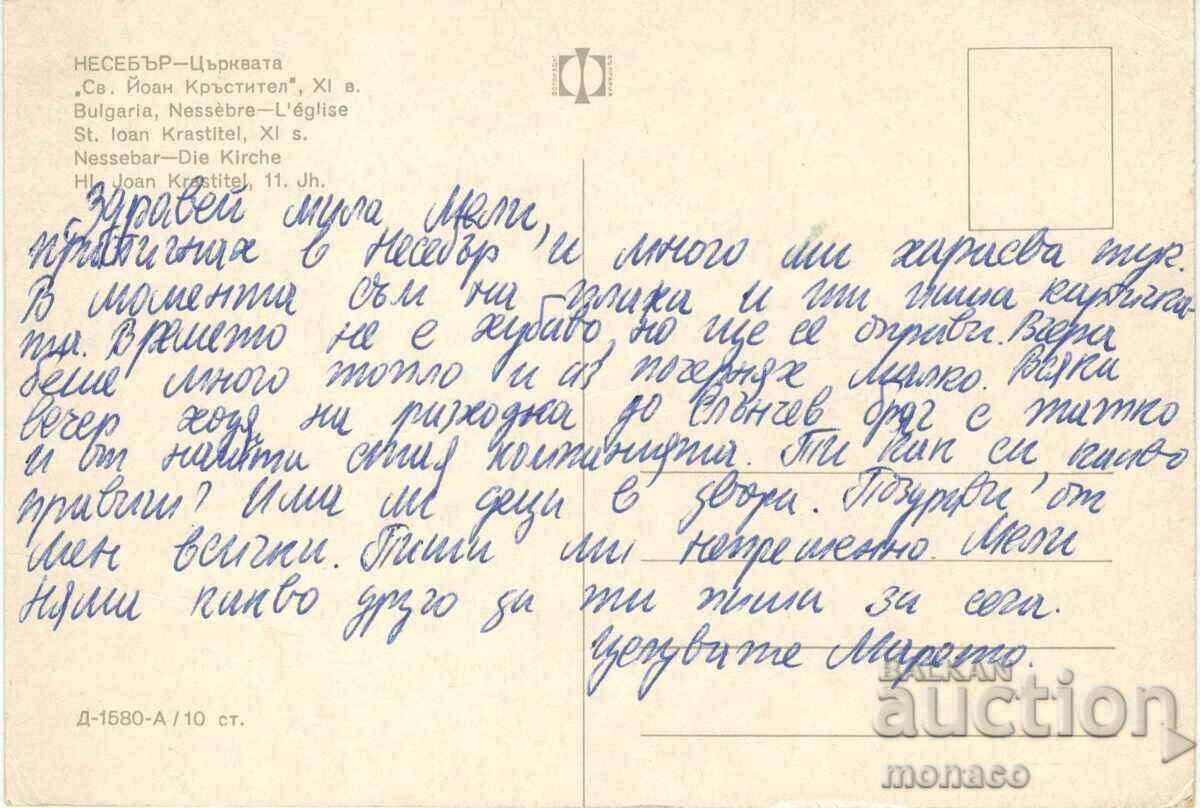 НЕСЕБЪР—Църквата
„Св. Йоан Кръстител", XI в.
Bulgaria, Nessèbre—L'église
St. Ioan Krastitel, XI s.
Nessebar—Die Kirche
Hl. Joan Krastitel, 11. Jh.
ФОТОИЗДАТ
БЪЛГАРИЯ
Здравей мила Мели,
пристигнах в Несебър и много ми харесва тук.
В момента съм на плажа и ти пиша картичка-
та. Времето не е хубаво, но ще се оправи. Вчера
беше много топло и аз почернях малко. Всяка
вечер ходя на разходка до Слънчев бряг с татко
и от нашта стая компанията. Ти как си какво
правиш? Има ли деца в двора. Поздрави от
мен всички. Пиши ми непременно. Мели
няма какво друго да ти пиша за сега.
Целувате Марето.
Д-1580-А/10 ст.
BALKAN
auction
monaco